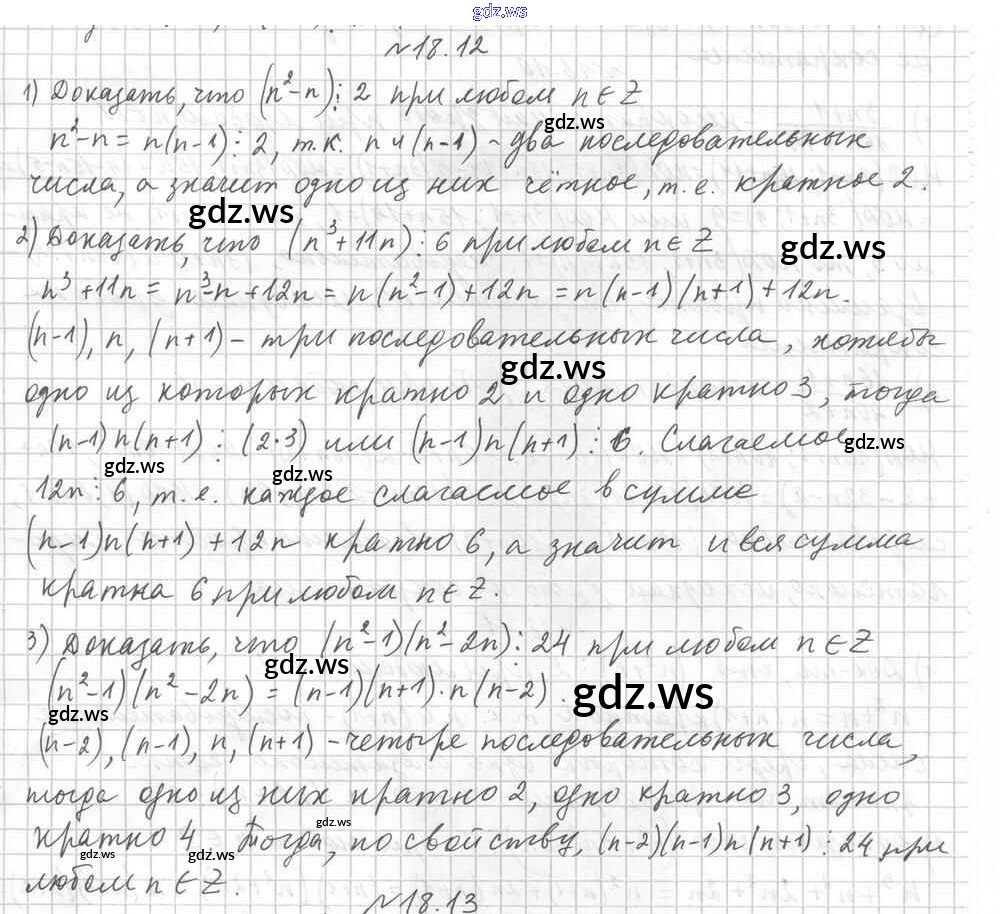 gdz.ws
№18.12
1) Доказать, что (n²-n)⋮2 при любом n∈Z
gdz.ws
n²-n = n(n-1)⋮2, т.к. n и (n-1) - два последовательных
числа, а значит одно из них чётное, т.е. кратное 2.
gdz.ws
2) Доказать, что (n³+11n)⋮6 при любом n∈Z
gdz.ws
n³+11n = n³-n+12n = n(n²-1)+12n = n(n-1)(n+1)+12n.
(n-1), n, (n+1) - три последовательных числа, хотябы
gdz.ws
одно из которых кратно 2 и одно кратно 3, тогда
(n-1)n(n+1)⋮(2·3) или (n-1)n(n+1)⋮6. Слагаемое
gdz.ws
gdz.ws gdz.ws
12n⋮6, т.е. каждое слагаемое в сумме
(n-1)n(n+1)+12n кратно 6, а значит и вся сумма
кратна 6 при любом n∈Z.
3) Доказать, что (n²-1)(n²-2n)⋮24 при любом n∈Z
gdz.ws
(n²-1)(n²-2n) = (n-1)(n+1)·n(n-2).
gdz.ws
gdz.ws
(n-2), (n-1), n, (n+1) - четыре последовательных числа,
тогда одно из них кратно 2, одно кратно 3, одно
gdz.ws
кратно 4. Тогда, по свойству, (n-2)(n-1)n(n+1)⋮24 при
gdz.ws gdz.ws gdz.ws
любом n∈Z.
№18.13